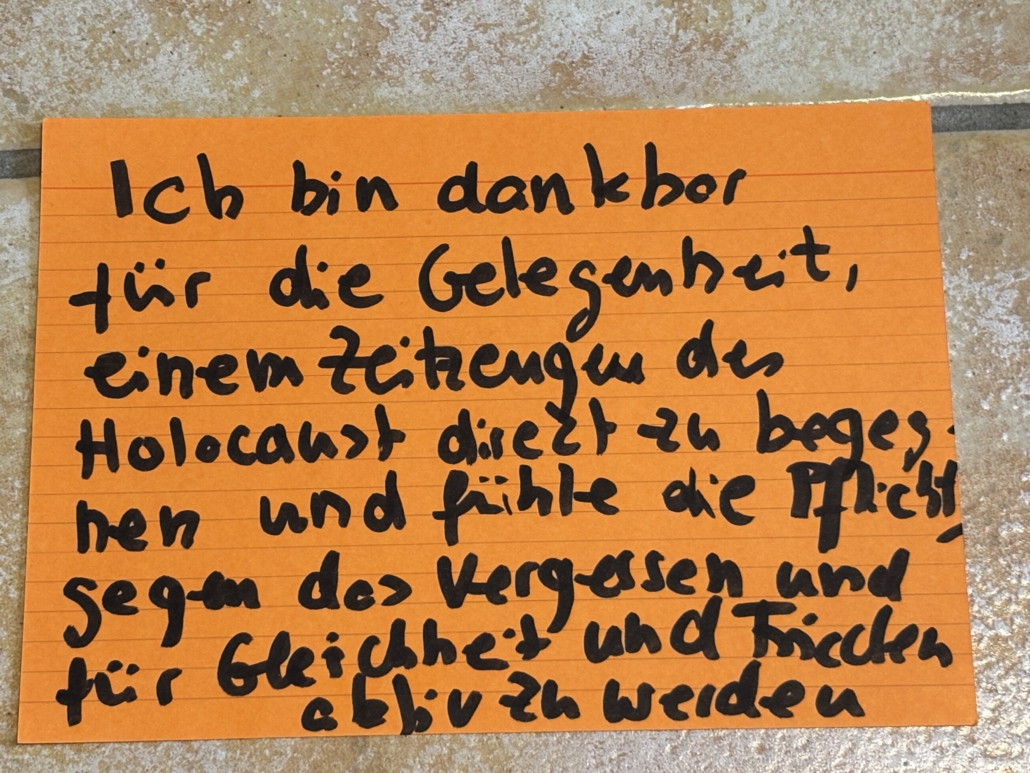 Ich bin dankbar
für die Gelegenheit,
einem Zeitzeugen des
Holocaust direkt zu begeg-
nen und fühle die Pflicht,
gegen das Vergessen und
für Gleichheit und Frieden
aktiv zu werden